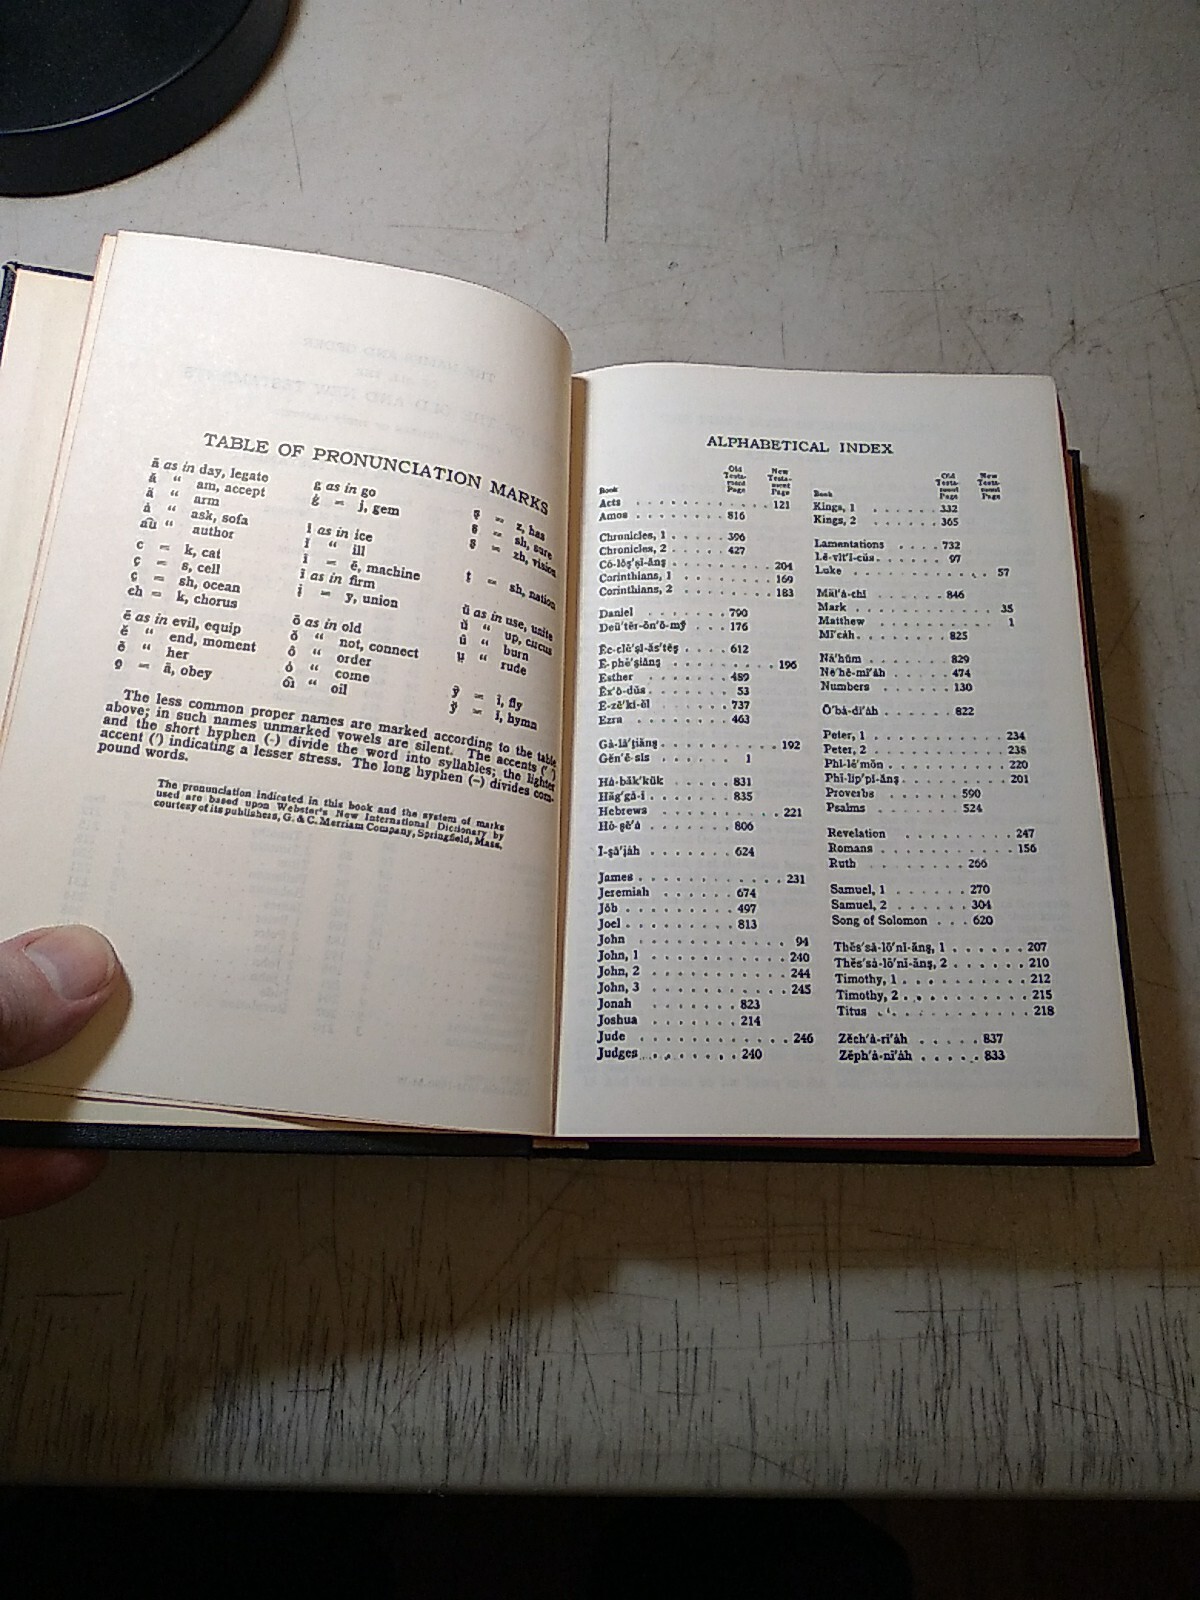 TABLE OF PRONUNCIATION MARKS
ā as in day, legato
ă “ am, accept
ä “ arm
ȧ “ ask, sofa
au̇ “ author
c = k, cat
ç = s, cell
ç = sh, ocean
ch = k, chorus
ē as in evil, equip
ĕ “ end, moment
ẽ “ her
e̱ = ā, obey
g as in go
ġ = j, gem
ī as in ice
ĭ “ ill
ï = ē, machine
ĩ as in firm
i̇ = y, union
ō as in old
ŏ “ not, connect
ô “ order
ȯ “ come
oi “ oil
ş = z, has
= sh, sure
= zh, vision
ţ = sh, nation
ū as in use, unite
ŭ “ up, cucus
û “ burn
ụ “ rude
ȳ = ī, fly
y̆ = ĭ, hymn
The less common proper names are marked according to the table
above; in such names unmarked vowels are silent. The accents (′ ′)
and the short hyphen (-) divide the word into syllables; the lighter
accent (′) indicating a lesser stress. The long hyphen (–) divides com-
pound words.
The pronunciation indicated in this book and the system of marks
used are based upon Webster's New International Dictionary by
courtesy of its publishers, G. & C. Merriam Company, Springfield, Mass.
ALPHABETICAL INDEX
Book Old Testament Page New Testament Page
Acts . . . . . . . . . . . 121
Amos . . . . . . . . 816
Chronicles, 1 . . . . 396
Chronicles, 2 . . . . 427
Cȯ-lŏş′şĭ-ănş . . . . . . . . 204
Corinthians, 1 . . . . . . . . 169
Corinthians, 2 . . . . . . . . 183
Daniel . . . . . . 790
Deū′tẽr-ŏn′ȯ-mў . . . 176
Ĕc-clē′şĭ-ăs′tēş . . . . 612
Ē-phē′şiănş . . . . . . . . . 196
Esther . . . . . . 489
Ĕx′ȯ-dŭs . . . . . . 53
Ē-zē′kĭ-ĕl . . . . . 737
Ezra . . . . . . . 463
Gȧ-lā′ţiănş . . . . . . . . . 192
Gĕn′ē-sĭs . . . . . 1
Hȧ-băk′kŭk . . . . 831
Hăg′gȧ-ī . . . . . 835
Hebrews . . . . . . . . . . 221
Hȯ-şē′ȧ . . . . . 806
Ī-şā′jăh . . . . . . 624
James . . . . . . . . . . . 231
Jeremiah . . . . . 674
Jōb . . . . . . . . 497
Joel . . . . . . . . 813
John . . . . . . . . . . . 94
John, 1 . . . . . . . . . . 240
John, 2 . . . . . . . . . . 244
John, 3 . . . . . . . . . . 245
Jonah . . . . . . 823
Joshua . . . . . . 214
Jude . . . . . . . . . . . 246
Judges . . . . . . . 240
Book Old Testament Page New Testament Page
Kings, 1 . . . . . . 332
Kings, 2 . . . . . . 365
Lamentations . . . . 732
Lē-vĭt′ĭ-cŭs . . . . . 97
Luke . . . . . . . . . . . 57
Măl′ȧ-chī . . . . . 846
Mark . . . . . . . . . . . 35
Matthew . . . . . . . . . . 1
Mī′cȧh . . . . . . . 825
Nā′hŭm . . . . . . 829
Nē′hē-mī′ăh . . . . 474
Numbers . . . . . . 130
Ō′bȧ-dī′ăh . . . . . 822
Peter, 1 . . . . . . . . . . 234
Peter, 2 . . . . . . . . . . 238
Phī-lē′mȯn . . . . . . . . . 220
Phĭ-lĭp′pĭ-ănş . . . . . . . . 201
Proverbs . . . . . . 590
Psalms . . . . . . . 524
Revelation . . . . . . . . . 247
Romans . . . . . . . . . . 156
Ruth . . . . . . . . 266
Samuel, 1 . . . . . . 270
Samuel, 2 . . . . . . 304
Song of Solomon . . . 620
Thĕs′sȧ-lō′nĭ-ănş, 1 . . . . . . 207
Thĕs′sȧ-lō′nĭ-ănş, 2 . . . . . . 210
Timothy, 1 . . . . . . . . . 212
Timothy, 2 . . . . . . . . . 215
Titus . . . . . . . . . . . 218
Zĕch′ȧ-rī′ăh . . . . . 837
Zĕph′ȧ-nī′ăh . . . . . 833